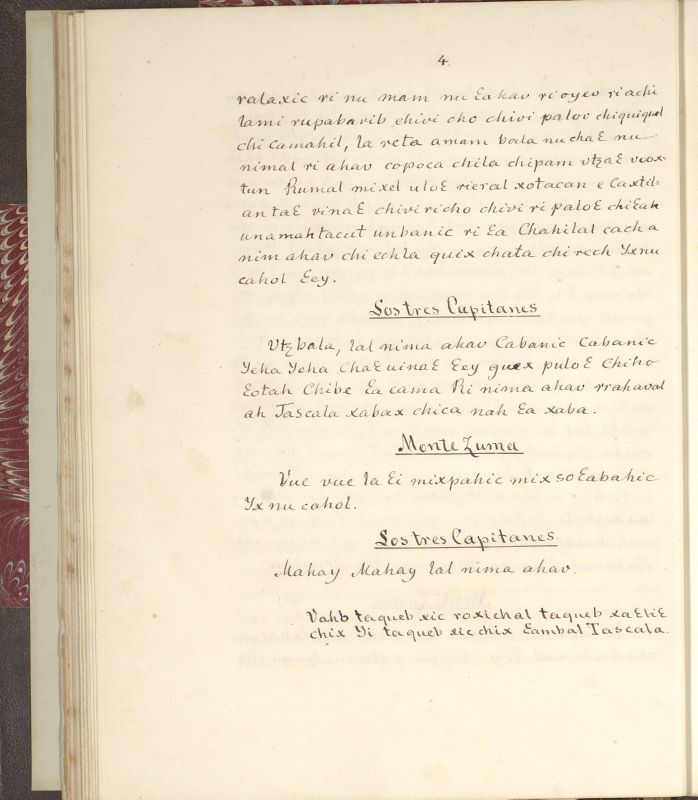 4.
ralaxic ri nu mam nu Ɛahav ri oyev ri achi
lami rupabavib chivi cho chivi paloi chiquiquel
chi Camahil, la reta amam bala nu chaƐ nu
nimal ri ahav copoca chila chipam vtzaƐ vcox-
tun Rumal mixel uloƐ rieral xotacan e Caxtil=
an taƐ vinaƐ chiviricho chivi ri paloƐ chiƐah
unamahtacut unbanic ri Ɛa Chahilal cach a
nim ahav chi echla quix chata chi rech Yxnu
cahol Ɛey.
Los tres Capitanes
Vtzbala, lal nima ahav Cabanic Cabanic
Yeha Yeha ChaƐ uinaƐ Ɛey quex puloƐ Chiho
Ɛotah Chibe Ɛa cama Ri nima ahav rrahaval
ah Tascala xabax chica nah Ɛa xaba.
Monte Zuma
Vue vue la Ɛi mixpahic mix soƐabahic
Yx nu cahol.
Los tres Capitanes.
Mahay Mahay lal nima ahav.
Vahb taqueb xic roxichal taqueb xaƐliƐ
chix Yi taqueb xic chix Ɛambal Tascala.